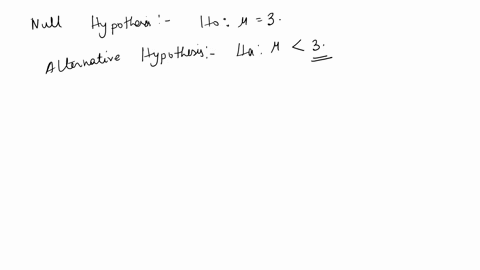 Null Hypothesis:- H0: μ = 3.
Alternative Hypothesis:- Ha: μ < 3.